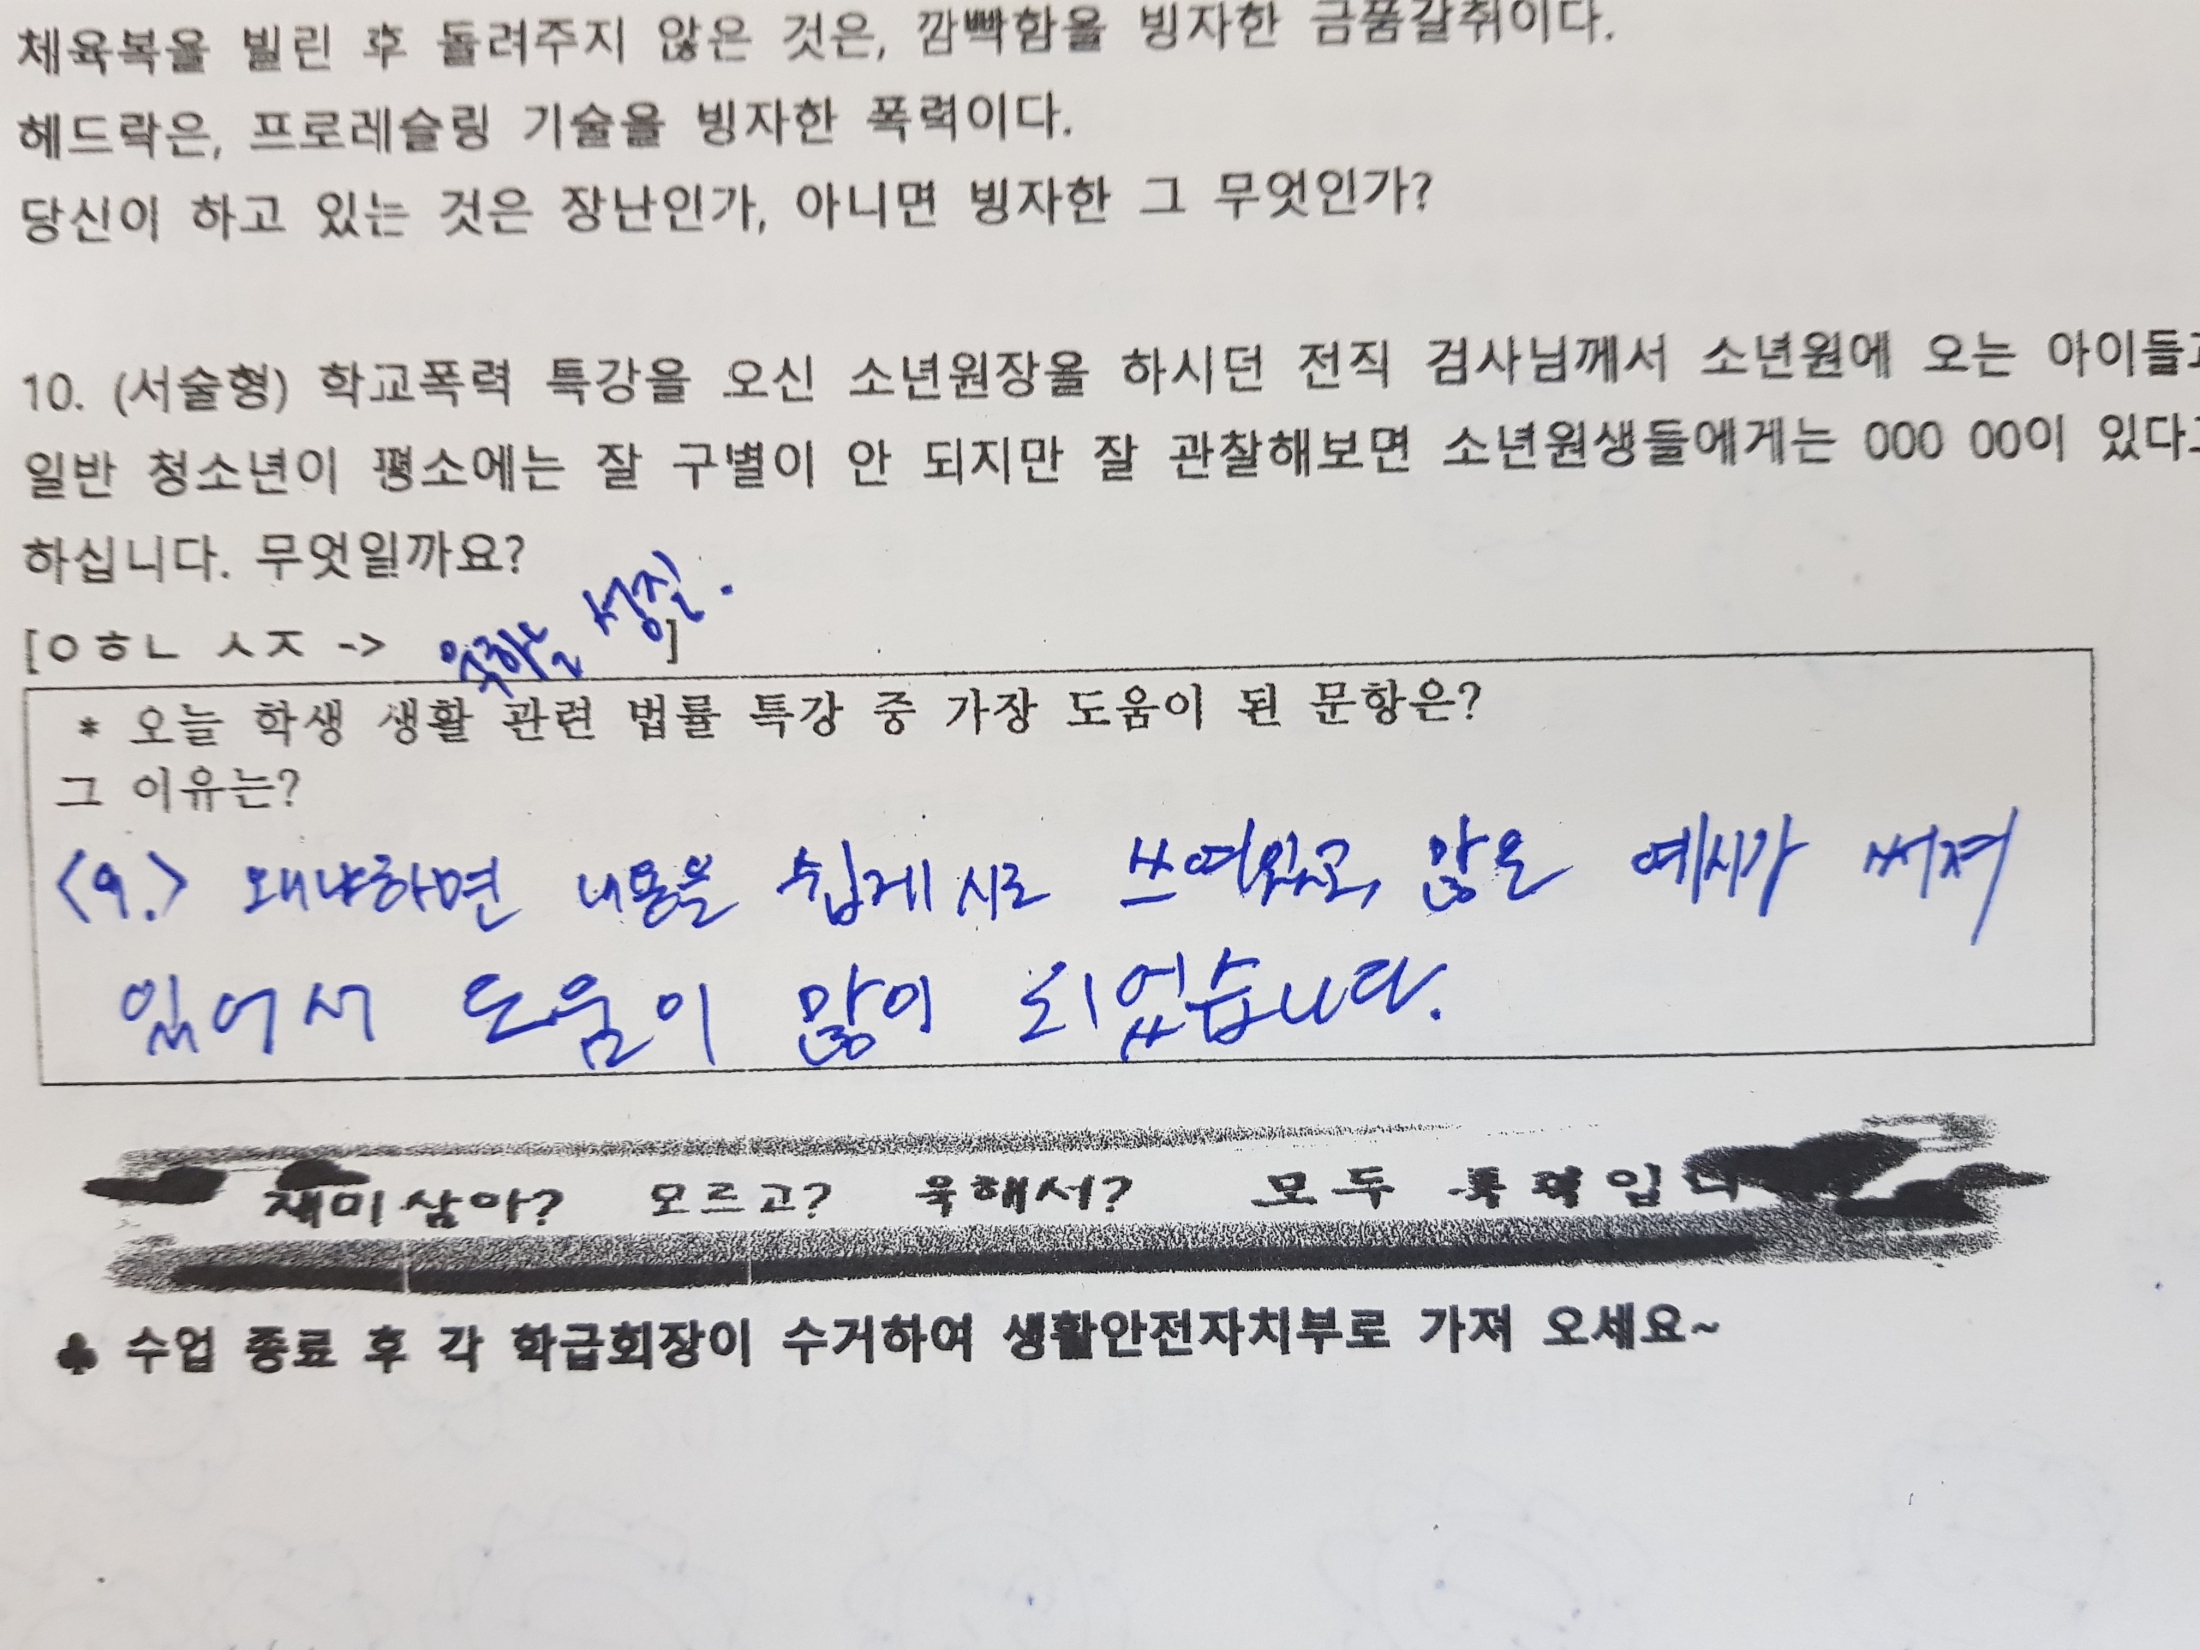 체육복을 빌린 후 돌려주지 않은 것은, 깜빡함을 빙자한 금품갈취이다.
헤드락은, 프로레슬링 기술을 빙자한 폭력이다.
당신이 하고 있는 것은 장난인가, 아니면 빙자한 그 무엇인가?
10. (서술형) 학교폭력 특강을 오신 소년원장을 하시던 전직 검사님께서 소년원에 오는 아이들과
일반 청소년이 평소에는 잘 구별이 안 되지만 잘 관찰해보면 소년원생들에게는 OOO OO이 있다고
하십니다. 무엇일까요?
[ㅇㅎㄴ ㅅㅈ -> 욱하는 성질. ]
* 오늘 학생 생활 관련 법률 특강 중 가장 도움이 된 문항은?
그 이유는?
<9.> 왜냐하면 내용을 쉽게 시로 쓰여있고, 많은 예시가 써져
있어서 도움이 많이 되었습니다.
재미삼아? 모르고? 욱해서? 모두 폭력입니
♣ 수업 종료 후 각 학급회장이 수거하여 생활안전자치부로 가져 오세요~